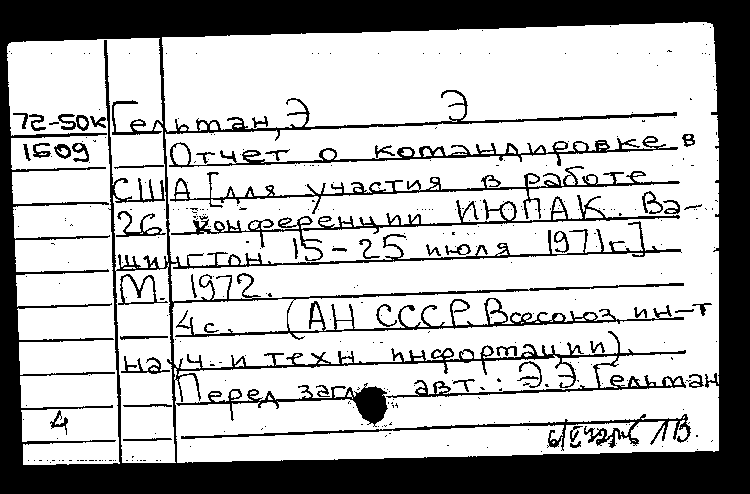 72-50к Гельман, Э Э
1509 Отчет о командировке в
США [для участия в работе
26 конференции ИЮПАК. Ва-
шингтон. 15-25 июля 1971г.].
М. 1972.
4с. (АН СССР. Всесоюз. ин-т
науч. и техн. информации).
Перед загл. авт.: Э.Э. Гельман
4
ЛВ.